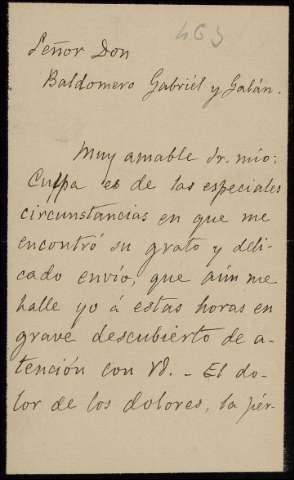 463
Señor Don
Baldomero Gabriél y Galán.
Muy amable Sr. mío:
Culpa es de las especiales
circunstancias en que me
encontró su grato y deli-
cado envío, que aún me
halle yo á estas horas en
grave descubierto de a-
tención con Vd. - El do-
lor de los dolores, la pér-